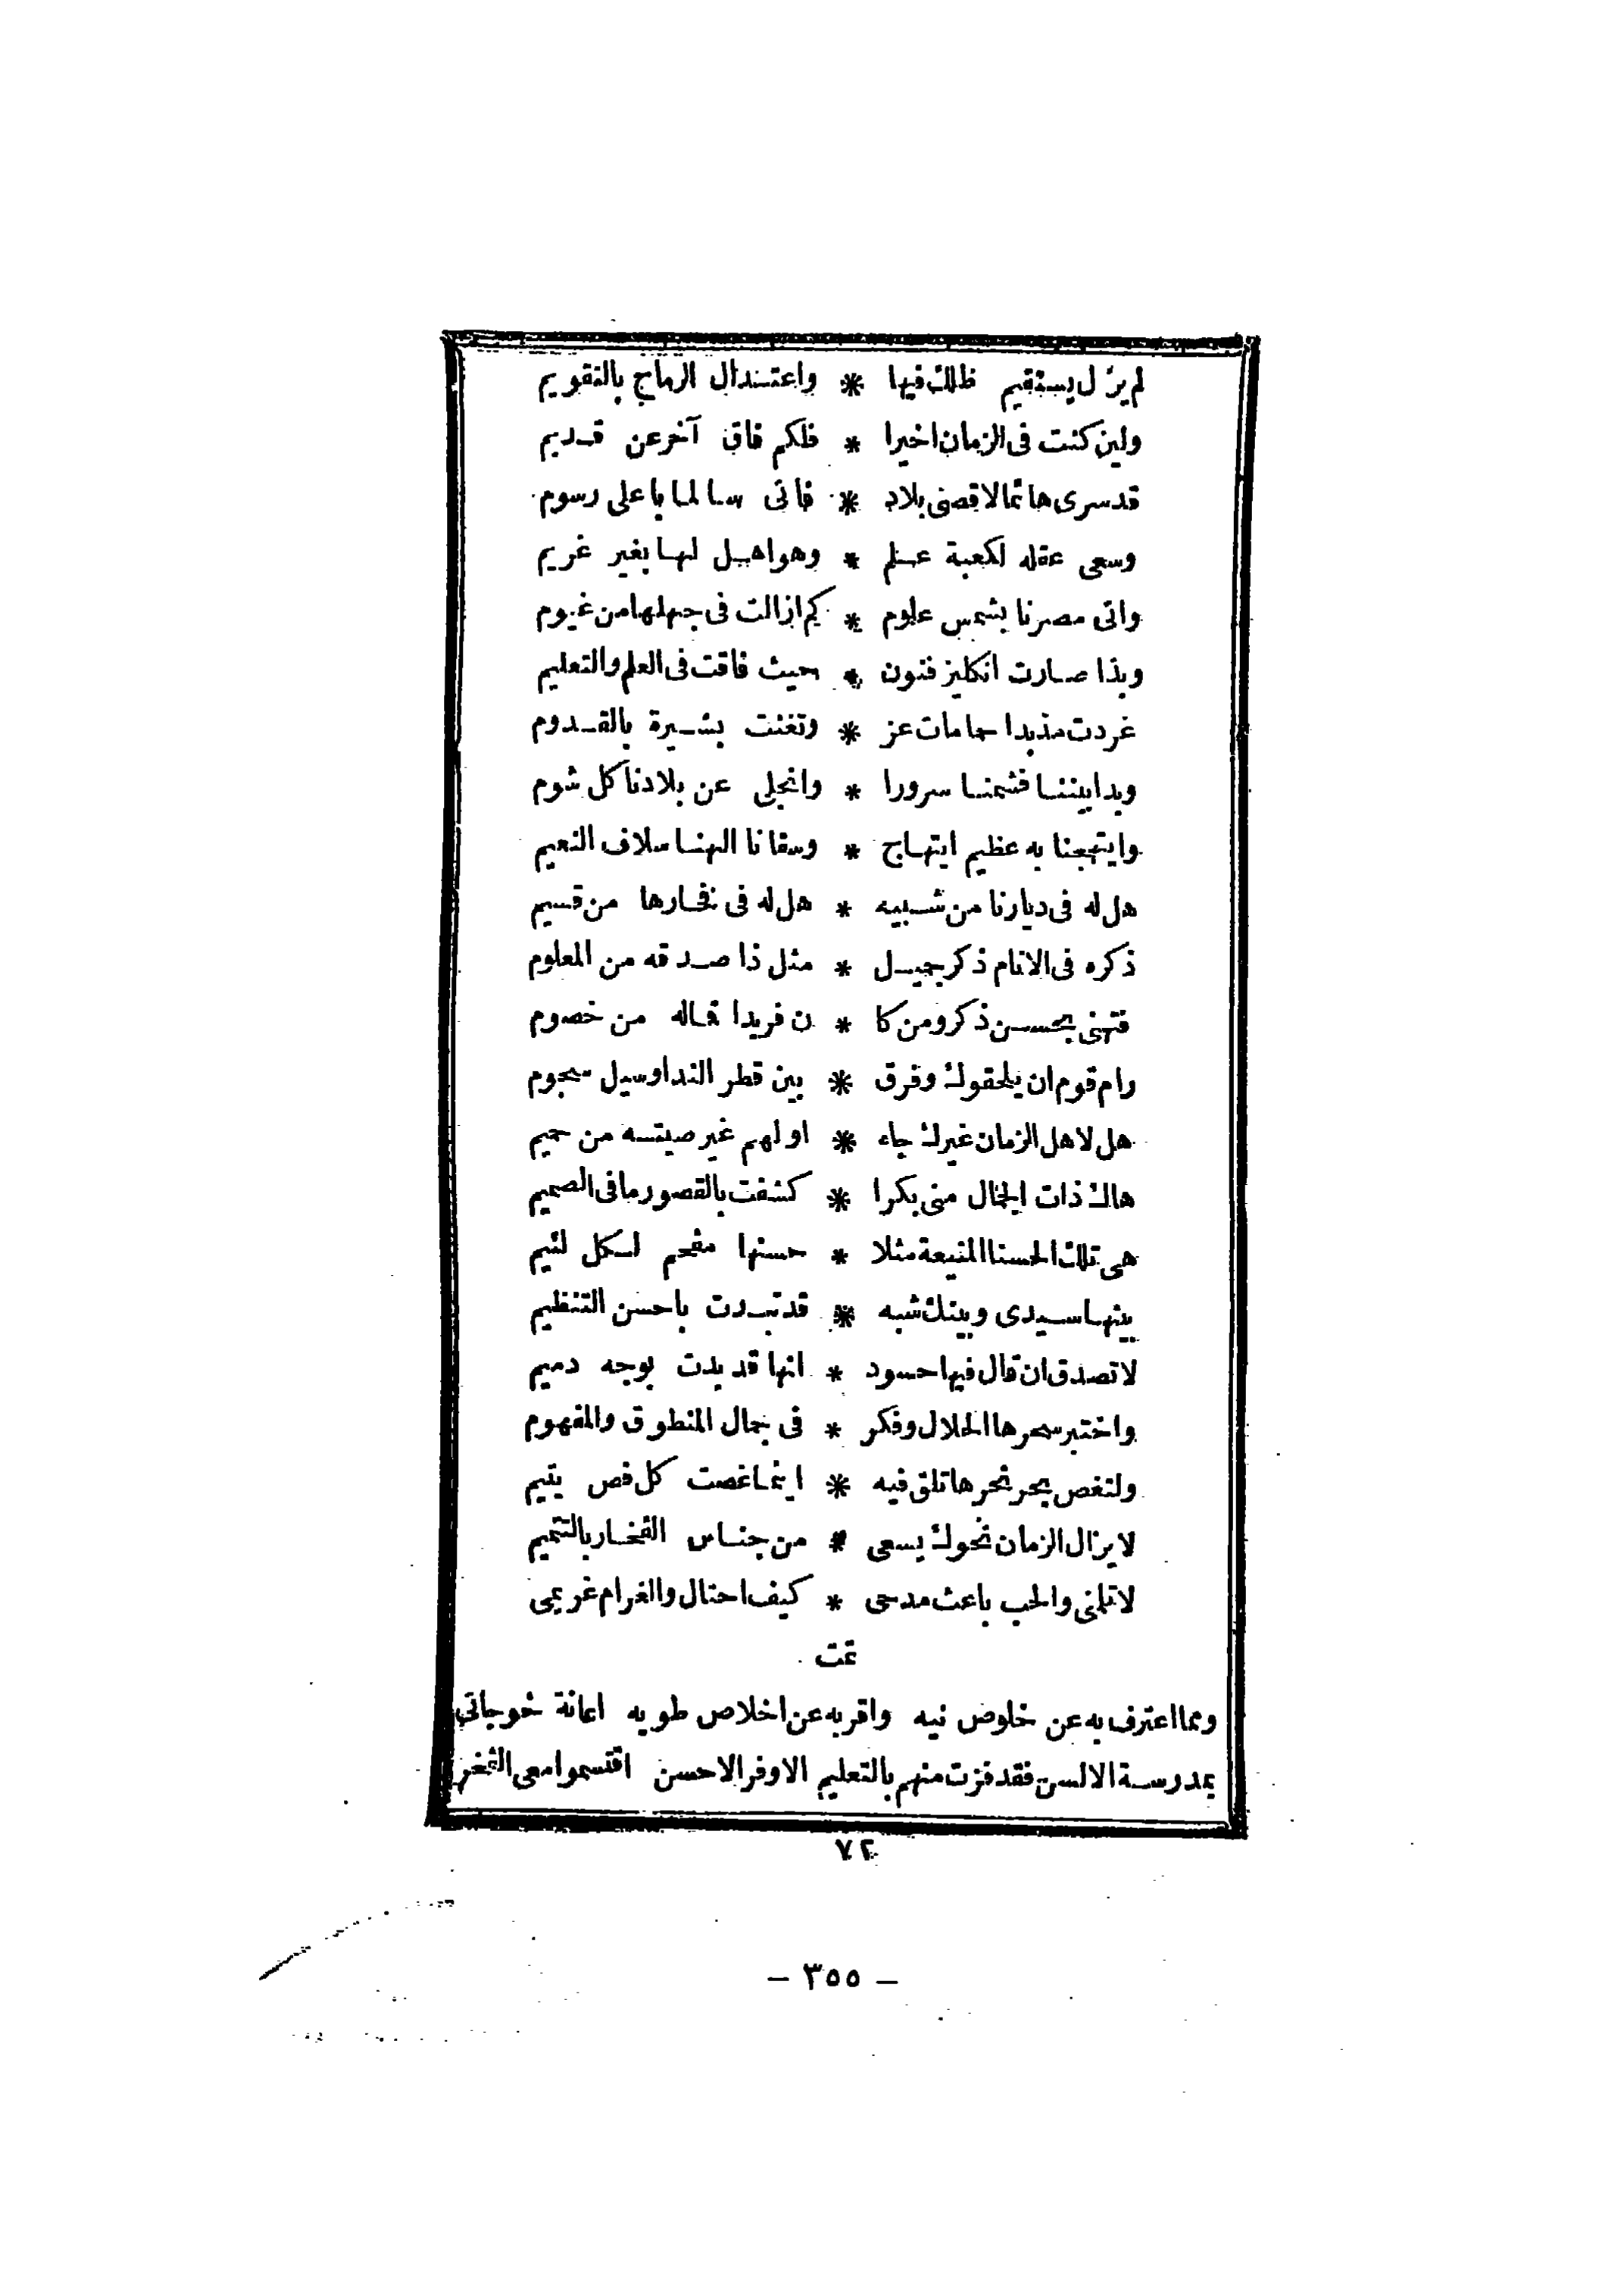 لم يزل يستقيم ظلك فيها * واعتدال الرماح بالتقويم
ولين كنت فى الزمان اخيرا * فلكم فاق آخر عن قديم
قد سرى هائما لاقصى بلاد * فاتى سالما باعلى رسوم
وسعى عقله لكعبة علم * وهو اهل لها بغير غريم
واتى مصرنا بشمس علوم * كم ازالت فى جهلها من غيوم
وبذا صارت انكليز فنون * حيث فاقت فى العلم والتعليم
غردت مذ بدا حمامات عز * وتغنت بشيرة بالقدوم
وبدا بيننا فشمنا سرورا * وانجلى عن بلادنا كل شوم
وابتهجنا به عظيم ابتهاج * وسقانا الهنا سلاف النعيم
هل له فى ديارنا من شبيه * هل له فى فخارها من قسيم
ذكره فى الانام ذكر جميل * مثل ذا صدقه من المعلوم
فتهنى بحسن ذكر ومن كا * ن فريدا فماله من خصوم
رام قوم ان يلحقوك وفرق * بين قطر الندا وسيل سجوم
هل لاهل الزمان غيرك جاء * او لهم غير صيته من حميم
هاك ذات الجمال منى بكرا * كشفت بالقصور ما فى الصميم
هى تلك الحسنا المنيعة مثلا * حسنها مفحم لكل لئيم
بينها سيدى وبينك شبه * قد تبدت باحسن التنظيم
لا تصدق ان قال فيها حسود * انها قد بدت بوجه دميم
واختبر سحرها الحلال وفكر * فى جمال المنطوق والمفهوم
ولتغص بحر نحرها تلق فيه * اينما غصت كل فص يتيم
لا يزال الزمان نحوك يسعى * من جناس الفخار بالتتميم
لا تلمنى والحب باعث مدحى * كيف احتال والغرام غريمى
تمت
ومما اعترف به عن خلوص نيه واقر به عن اخلاص طويه اعانة خوجاتى
بمدرسة الالسن فقد فزت منهم بالتعليم الاوفر الاحسن اقتسموا معى
٧٢
– ٣٥٥ –